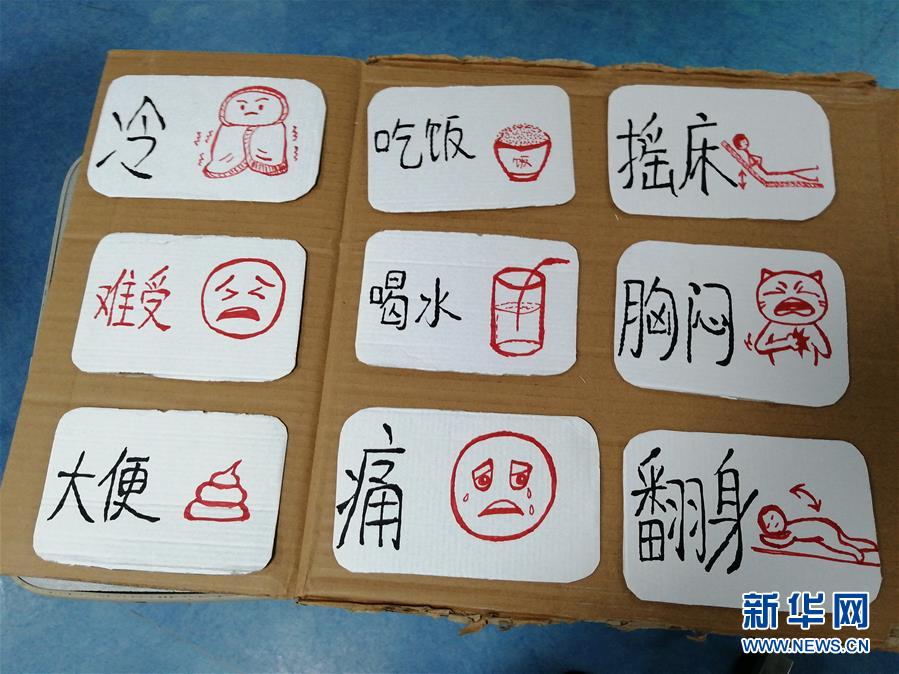 冷
吃饭
饭
摇床
难受
喝水
胸闷
大便
痛
翻身
新华网
WWW.NEWS.CN